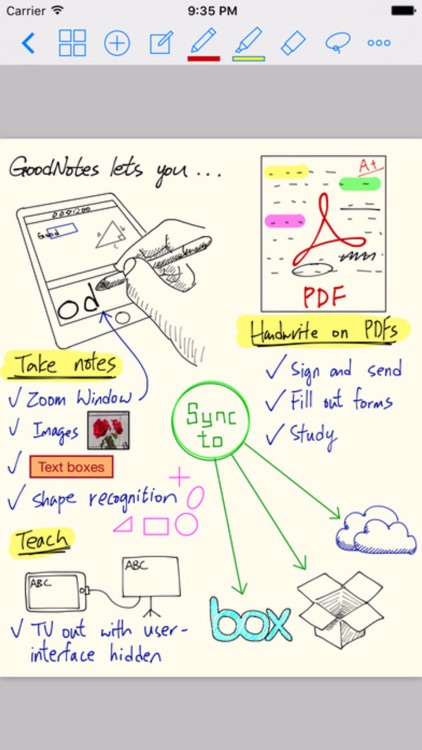 Carrier 9:35 PM
GoodNotes lets you ...
Good
od
A+
PDF
Handwrite on PDFs
✓ Sign and send
✓ Fill out forms
✓ Study
Take notes
✓ Zoom Window
✓ Images
✓ Text boxes
✓ shape recognition
Sync
to
Teach
ABC
ABC
✓ TV out with user-
interface hidden
box